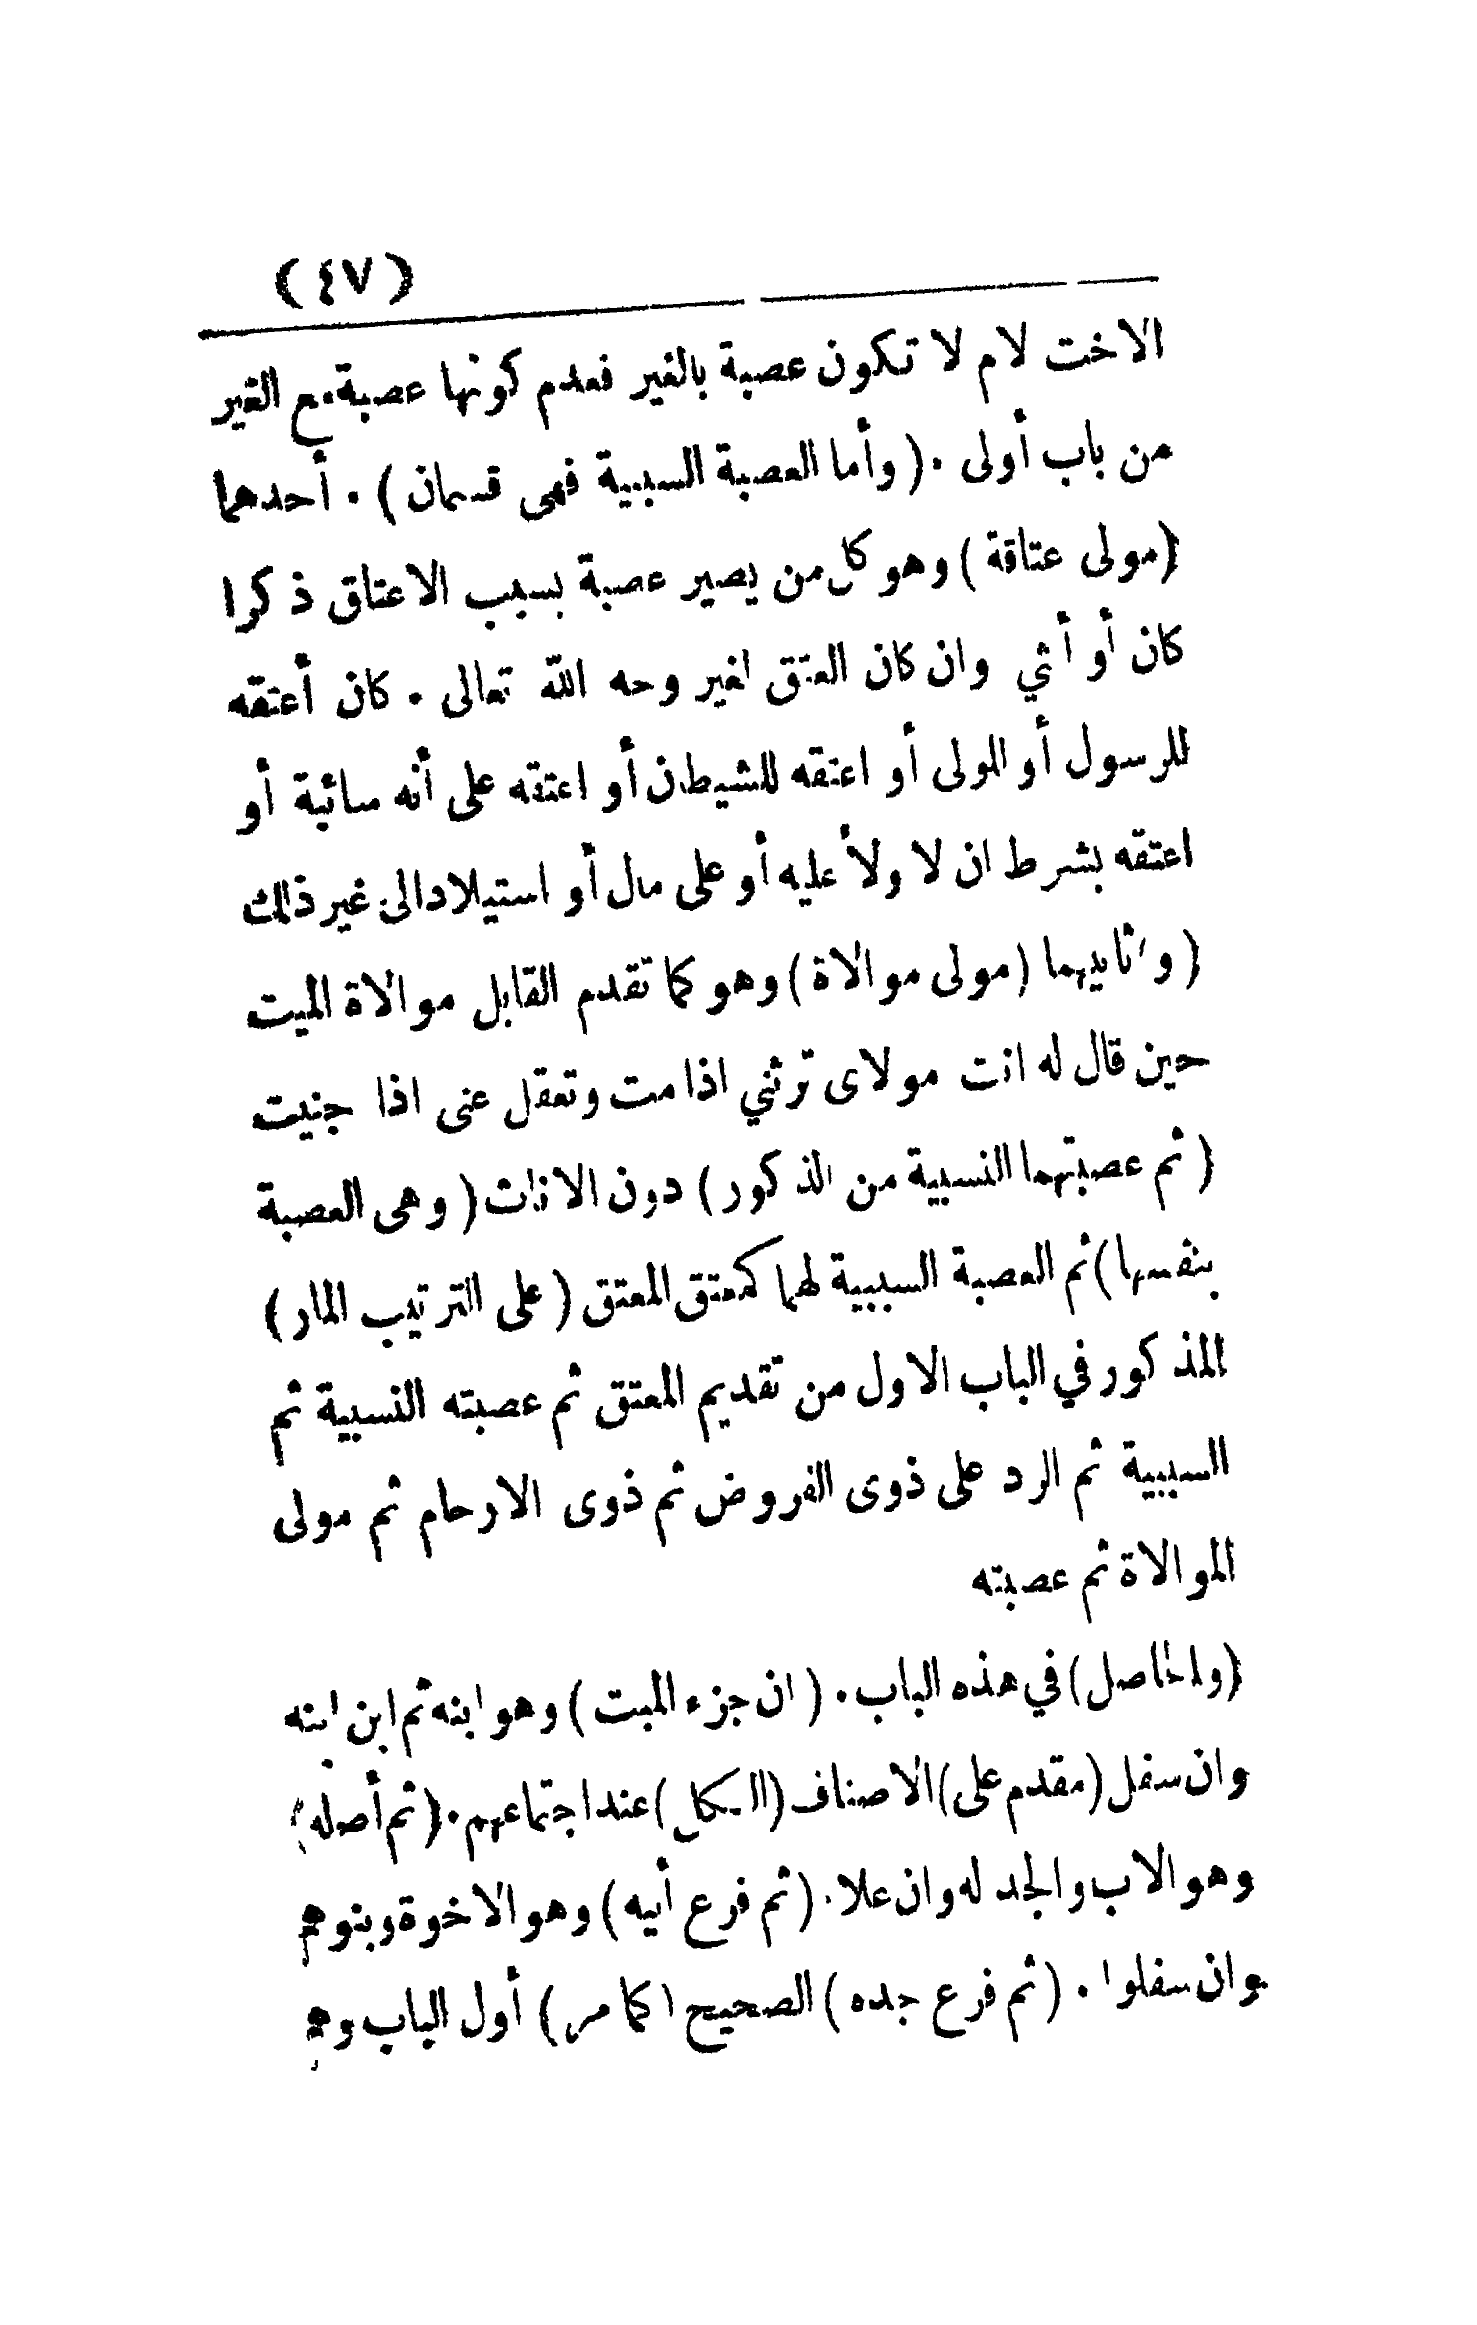 (٤٧)
الاخت لام لا تكون عصبة بالغير فعدم كونها عصبة مع الغير
من باب أولى . (وأما العصبة السببية فهى قسمان) . أحدهما
(مولى عتاقة) وهو كل من يصير عصبة بسبب الاعتاق ذكرا
كان أو أنثي وان كان العتق لغير وجه الله تعالى . كان أعتقه
للرسول أو المولى أو اعتقه للشيطان أو اعتقه على أنه سائبة أو
اعتقه بشرط ان لا ولأ عليه أو على مال أو استيلاد الى غير ذلك
(وثانيهما (مولى موالاة) وهو كما تقدم القابل موالاة الميت
حين قال له انت مولاى ترثني اذا مت وتعقل عنى اذا جنيت
(ثم عصبتهما النسبية من الذكور) دون الاناث (وهى العصبة
بنفسها) ثم العصبة السببية لهما كمعتق المعتق (على الترتيب المار)
المذكور في الباب الاول من تقديم المعتق ثم عصبته النسبية ثم
السببية ثم الرد على ذوى الفروض ثم ذوى الارحام ثم مولى
الموالاة ثم عصبته
(والحاصل) في هذه الباب . (ان جزء الميت) وهو ابنه ثم ابن ابنه
وان سفل (مقدم على) الاصناف (الكل) عند اجتماعهم . (ثم أصله)
وهو الاب والجد له وان علا . (ثم فرع أبيه) وهو الاخوة وبنوهم
وان سفلوا . (ثم فرع جده) الصحيح (كما مر) أول الباب وهم